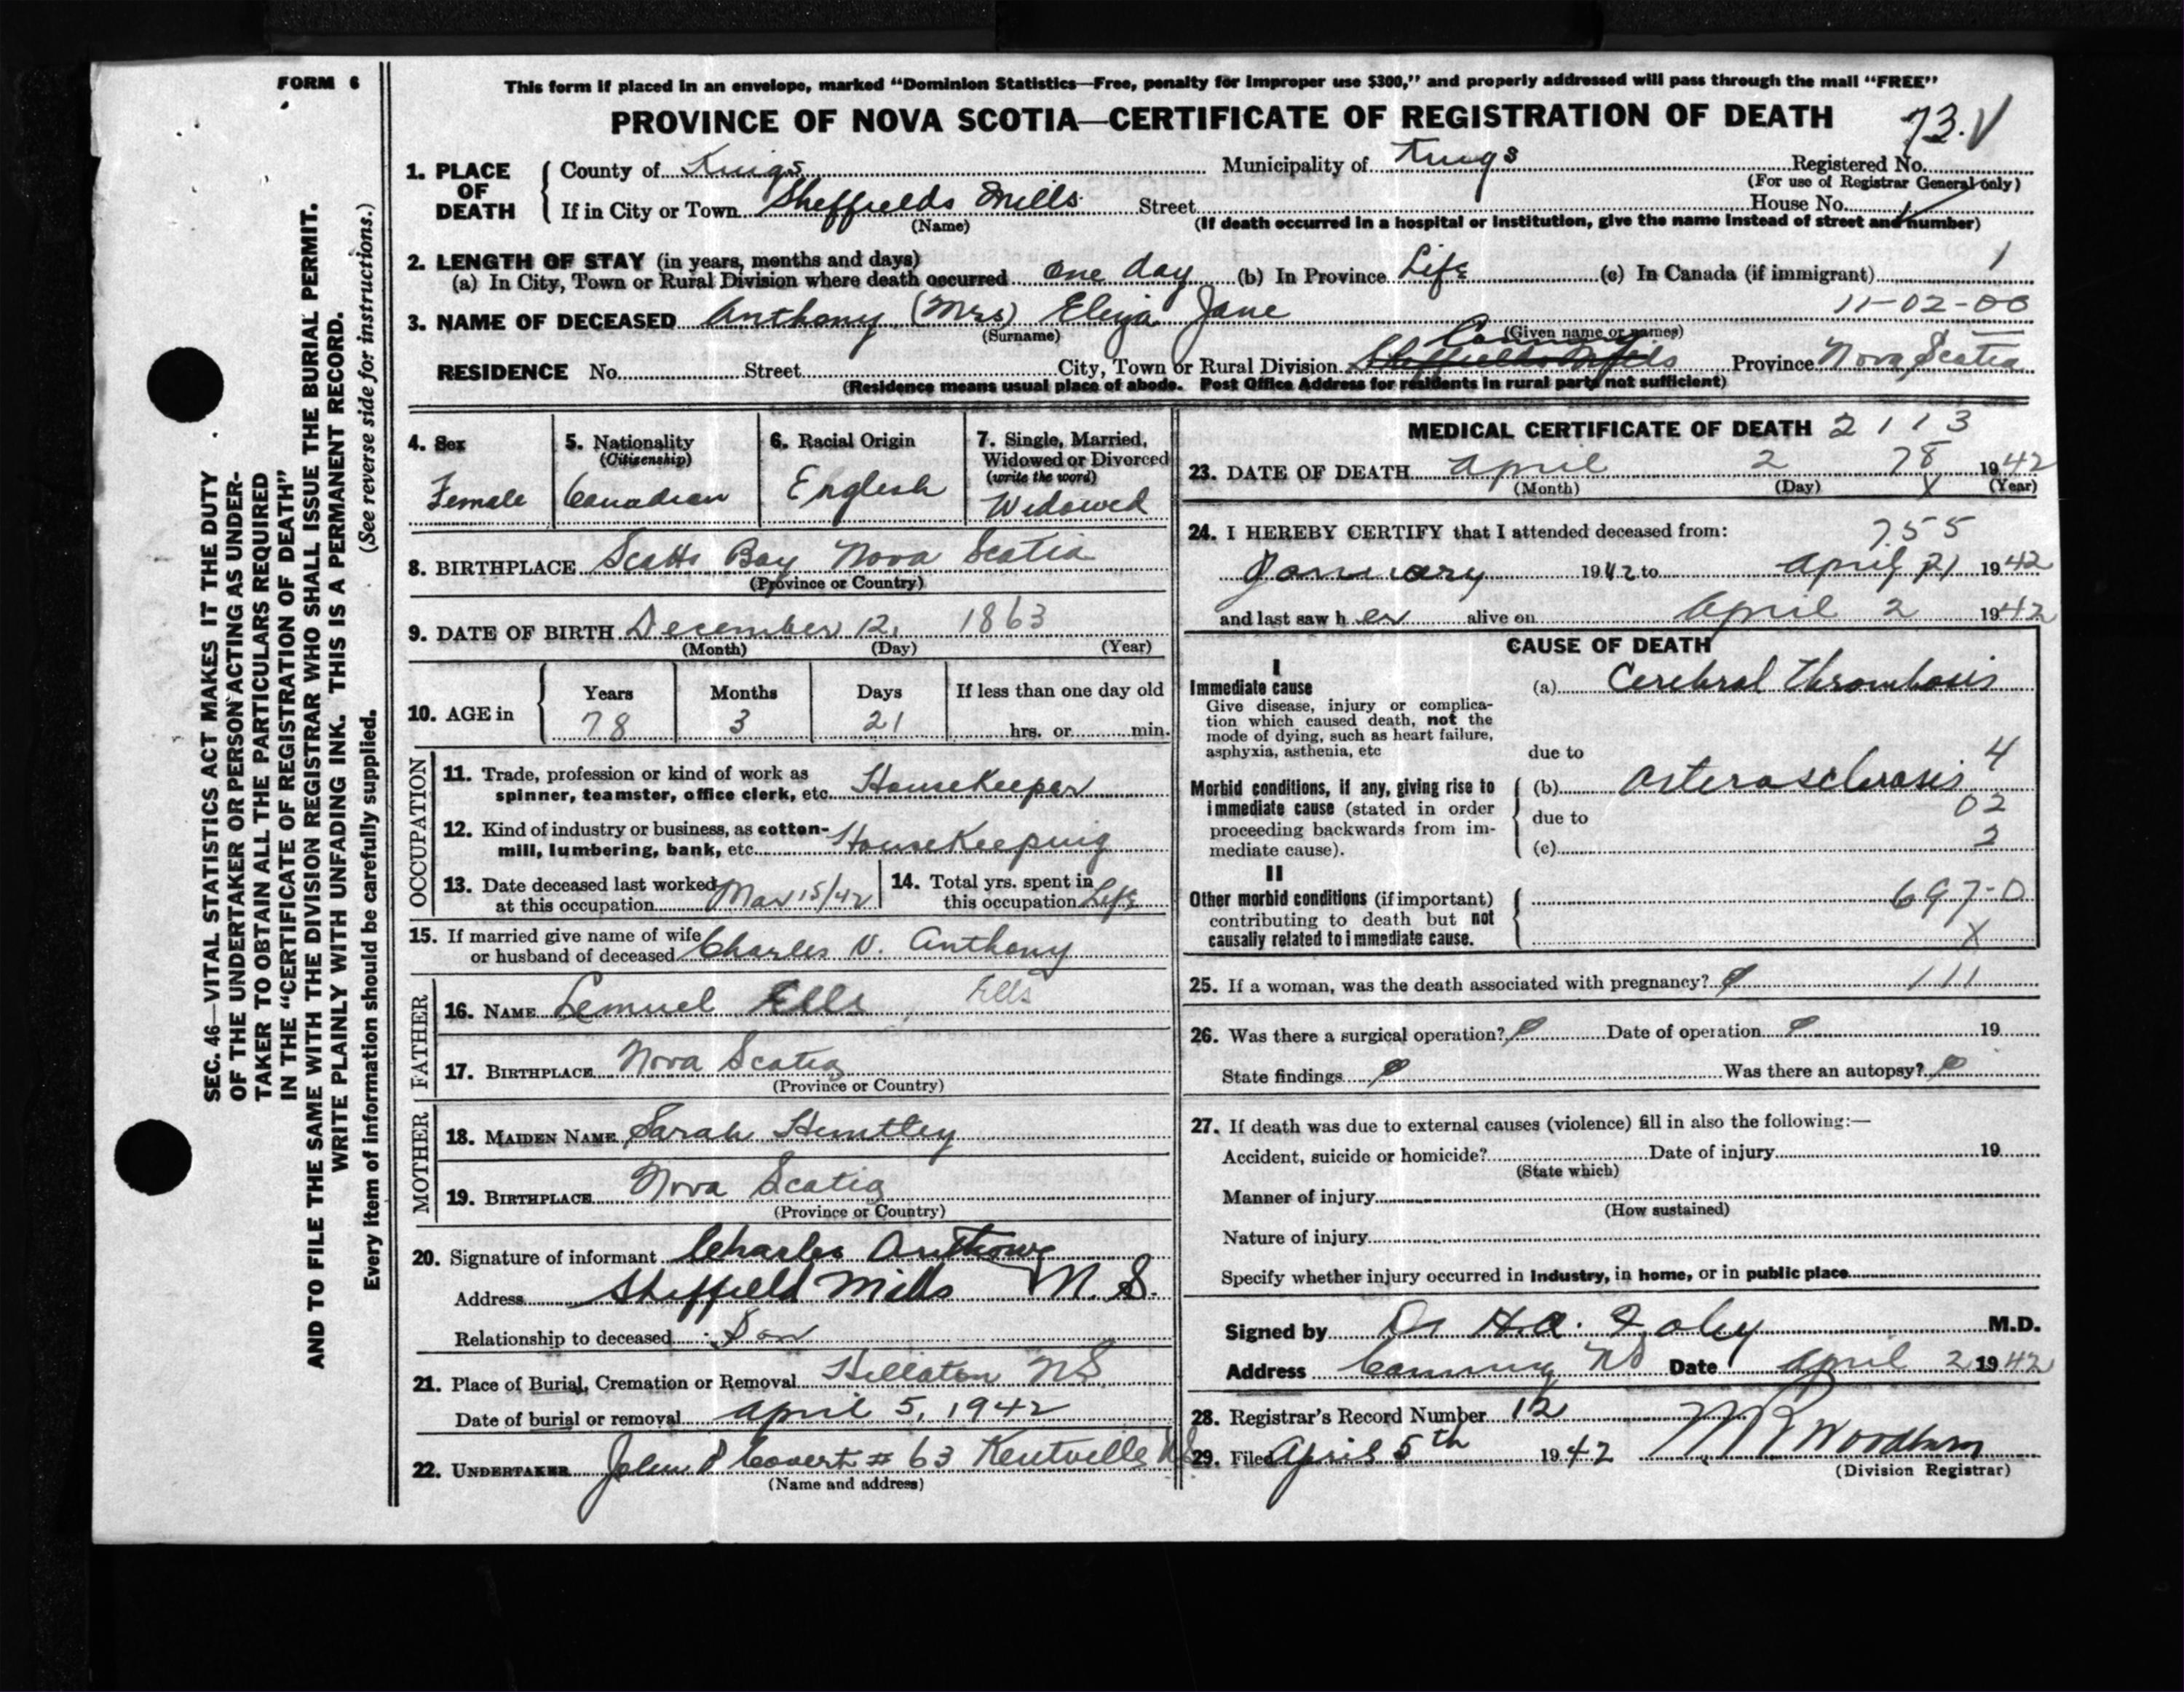 FORM 6
This form if placed in an envelope, marked "Dominion Statistics—Free, penalty for improper use $300," and properly addressed will pass through the mail "FREE"
PROVINCE OF NOVA SCOTIA—CERTIFICATE OF REGISTRATION OF DEATH
73.
1. PLACE OF DEATH
County of Kings Municipality of Kings Registered No.
(For use of Registrar General only)
If in City or Town Sheffields Mills Street House No.
(Name) (If death occurred in a hospital or institution, give the name instead of street and number)
2. LENGTH OF STAY (in years, months and days) 1
(a) In City, Town or Rural Division where death occurred one day (b) In Province Life (c) In Canada (if immigrant)
11-02-00
3. NAME OF DECEASED Anthony (Mrs) Eliza Jane
(Surname) (Given name or names)
Canning
RESIDENCE No. Street City, Town or Rural Division Sheffields Mills Province Nova Scotia
(Residence means usual place of abode. Post Office Address for residents in rural parts not sufficient)
4. Sex
Female
5. Nationality
(Citizenship)
Canadian
6. Racial Origin
English
7. Single, Married,
Widowed or Divorced
(write the word)
Widowed
8. BIRTHPLACE Scotts Bay Nova Scotia
(Province or Country)
9. DATE OF BIRTH December 12, 1863
(Month) (Day) (Year)
10. AGE in
Years Months Days If less than one day old
78 3 21 hrs. or min.
OCCUPATION
11. Trade, profession or kind of work as
spinner, teamster, office clerk, etc. HouseKeeper
12. Kind of industry or business, as cotton-
mill, lumbering, bank, etc. HouseKeeping
13. Date deceased last worked
at this occupation Mar 15/42
14. Total yrs. spent in
this occupation Life
15. If married give name of wife
or husband of deceased Charles V. Anthony
FATHER
16. NAME Lemuel Ells Ells
17. BIRTHPLACE Nova Scotia
(Province or Country)
MOTHER
18. MAIDEN NAME Sarah Huntley
19. BIRTHPLACE Nova Scotia
(Province or Country)
20. Signature of informant Charles Anthony
Address Sheffield Mills N.S.
Relationship to deceased Son
21. Place of Burial, Cremation or Removal Hillaton NS
Date of burial or removal April 5, 1942
22. UNDERTAKER John P Covert # 63 Kentville NS
(Name and address)
MEDICAL CERTIFICATE OF DEATH 2113
23. DATE OF DEATH April 2 78 1942
(Month) (Day) X (Year)
24. I HEREBY CERTIFY that I attended deceased from: 755
January 1942 to April 21 1942
and last saw her alive on April 2 1942
CAUSE OF DEATH
I
Immediate cause (a) Cerebral Thrombosis
Give disease, injury or complica-
tion which caused death, not the
mode of dying, such as heart failure,
asphyxia, asthenia, etc due to
4
Morbid conditions, if any, giving rise to (b) Arterosclerosis
immediate cause (stated in order 02
proceeding backwards from im- due to
mediate cause). (c) 2
II
Other morbid conditions (if important) 697-0
contributing to death but not
causally related to immediate cause. X
25. If a woman, was the death associated with pregnancy? 111
26. Was there a surgical operation? Date of operation 19
State findings Was there an autopsy?
27. If death was due to external causes (violence) fill in also the following:—
Accident, suicide or homicide? Date of injury 19
(State which)
Manner of injury
(How sustained)
Nature of injury
Specify whether injury occurred in industry, in home, or in public place
Signed by Dr H.A. Foley M.D.
Address Canning NS Date April 2 1942
28. Registrar's Record Number 12
29. Filed April 5th 1942
(Division Registrar)
SEC. 46—VITAL STATISTICS ACT MAKES IT THE DUTY
OF THE UNDERTAKER OR PERSON ACTING AS UNDER-
TAKER TO OBTAIN ALL THE PARTICULARS REQUIRED
IN THE "CERTIFICATE OF REGISTRATION OF DEATH"
AND TO FILE THE SAME WITH THE DIVISION REGISTRAR WHO SHALL ISSUE THE BURIAL PERMIT.
WRITE PLAINLY WITH UNFADING INK. THIS IS A PERMANENT RECORD.
(See reverse side for instructions.)
Every item of information should be carefully supplied.